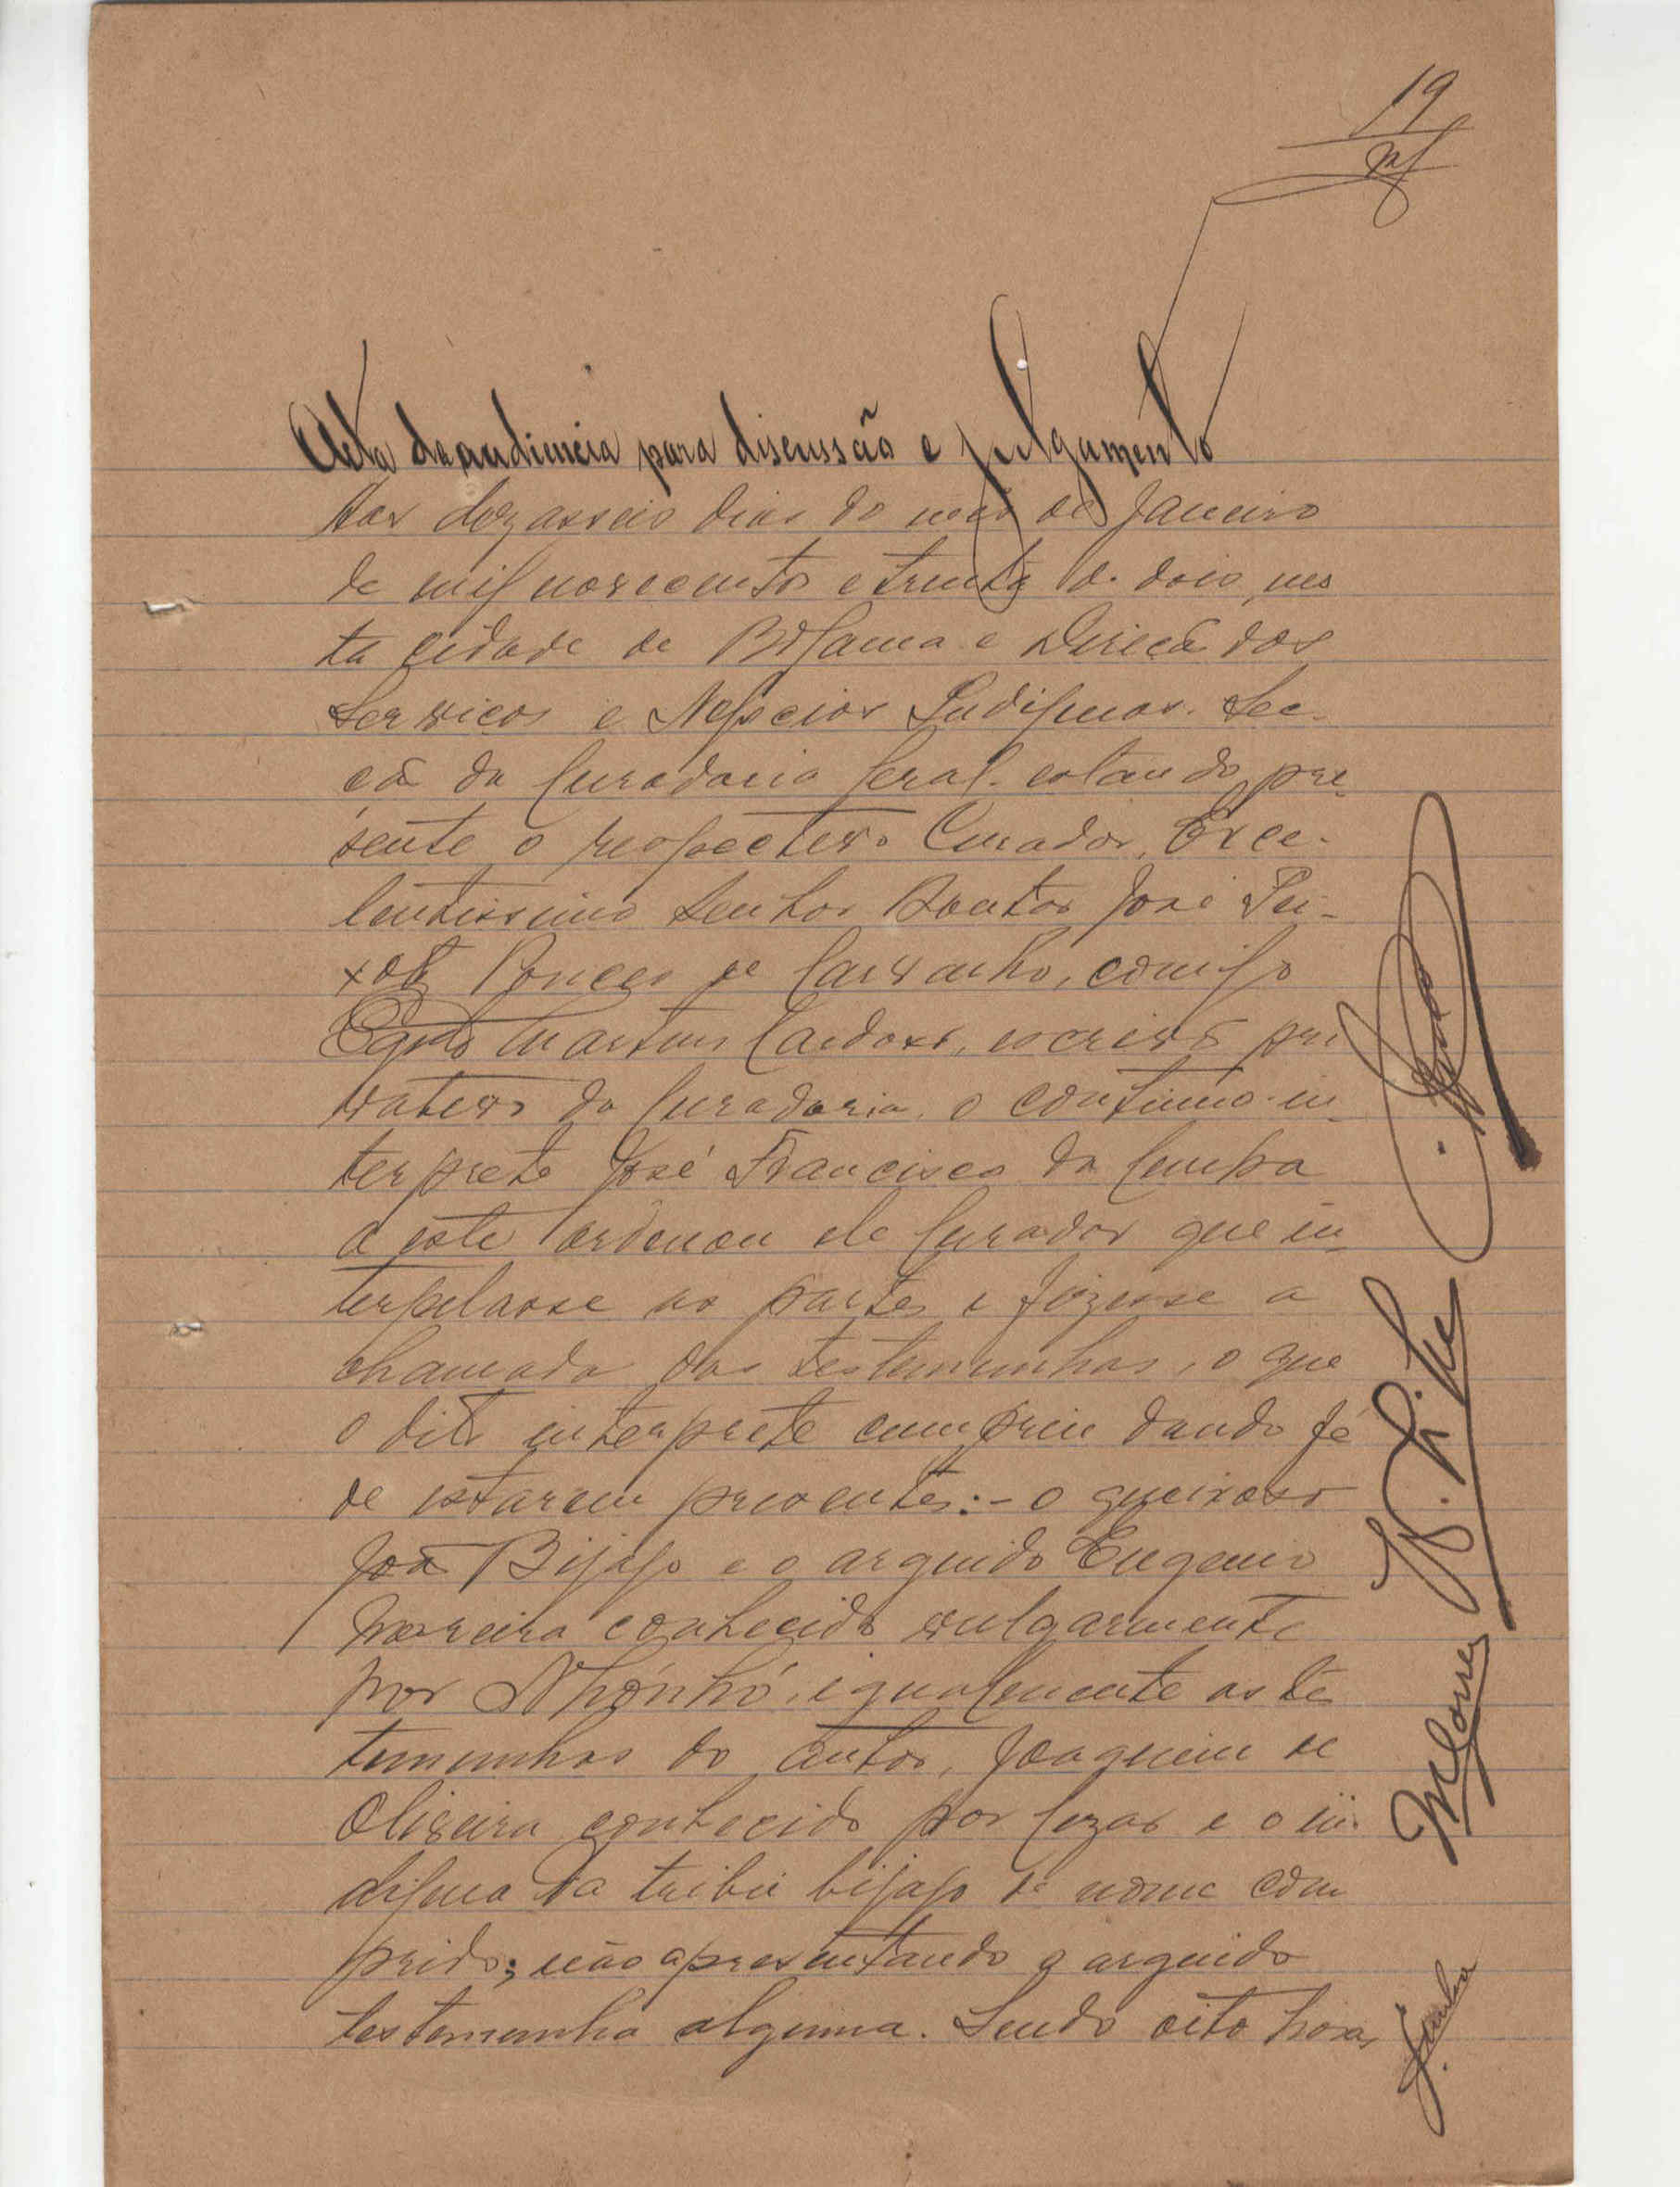 19
Acta da audiencia para discussão e julgamento
Aos dezasseis dias do mês de Janeiro
de mil novecentos e trinta e dois, nes
ta cidade de Bolama e Direcã dos
Serviços e Negocios Indigenas. Sec-
cã da Curadoria Geral. estando pre-
sente o respectivo Curador, Exce-
lentissimo Senhor Doutor José Pei-
xoto Ponces de Carvalho, comigo
Martins Cardoso, escrivã pri
vativo da Curadoria, o continuo-in-
terprete José Francisco da Cunha
a este ordenou ele Curador que in-
terpelasse as partes e fizesse a
chamada das testemunhas, o que
o dito interprete cumpriu dando fé
de estarem presentes:- o queixoso
Joã Bijago e o arguido Eugenio
Moreira conhecido vulgarmente
por Nhónhó, igualmente as tes
temunhas do autor, Joaquim de
Oliveira conhecido por Cezar e o in-
digena da tribu bijago de nome Com
prido; não apresentando o arguido
testemunha alguma. Sendo oito horas
J. Cunha